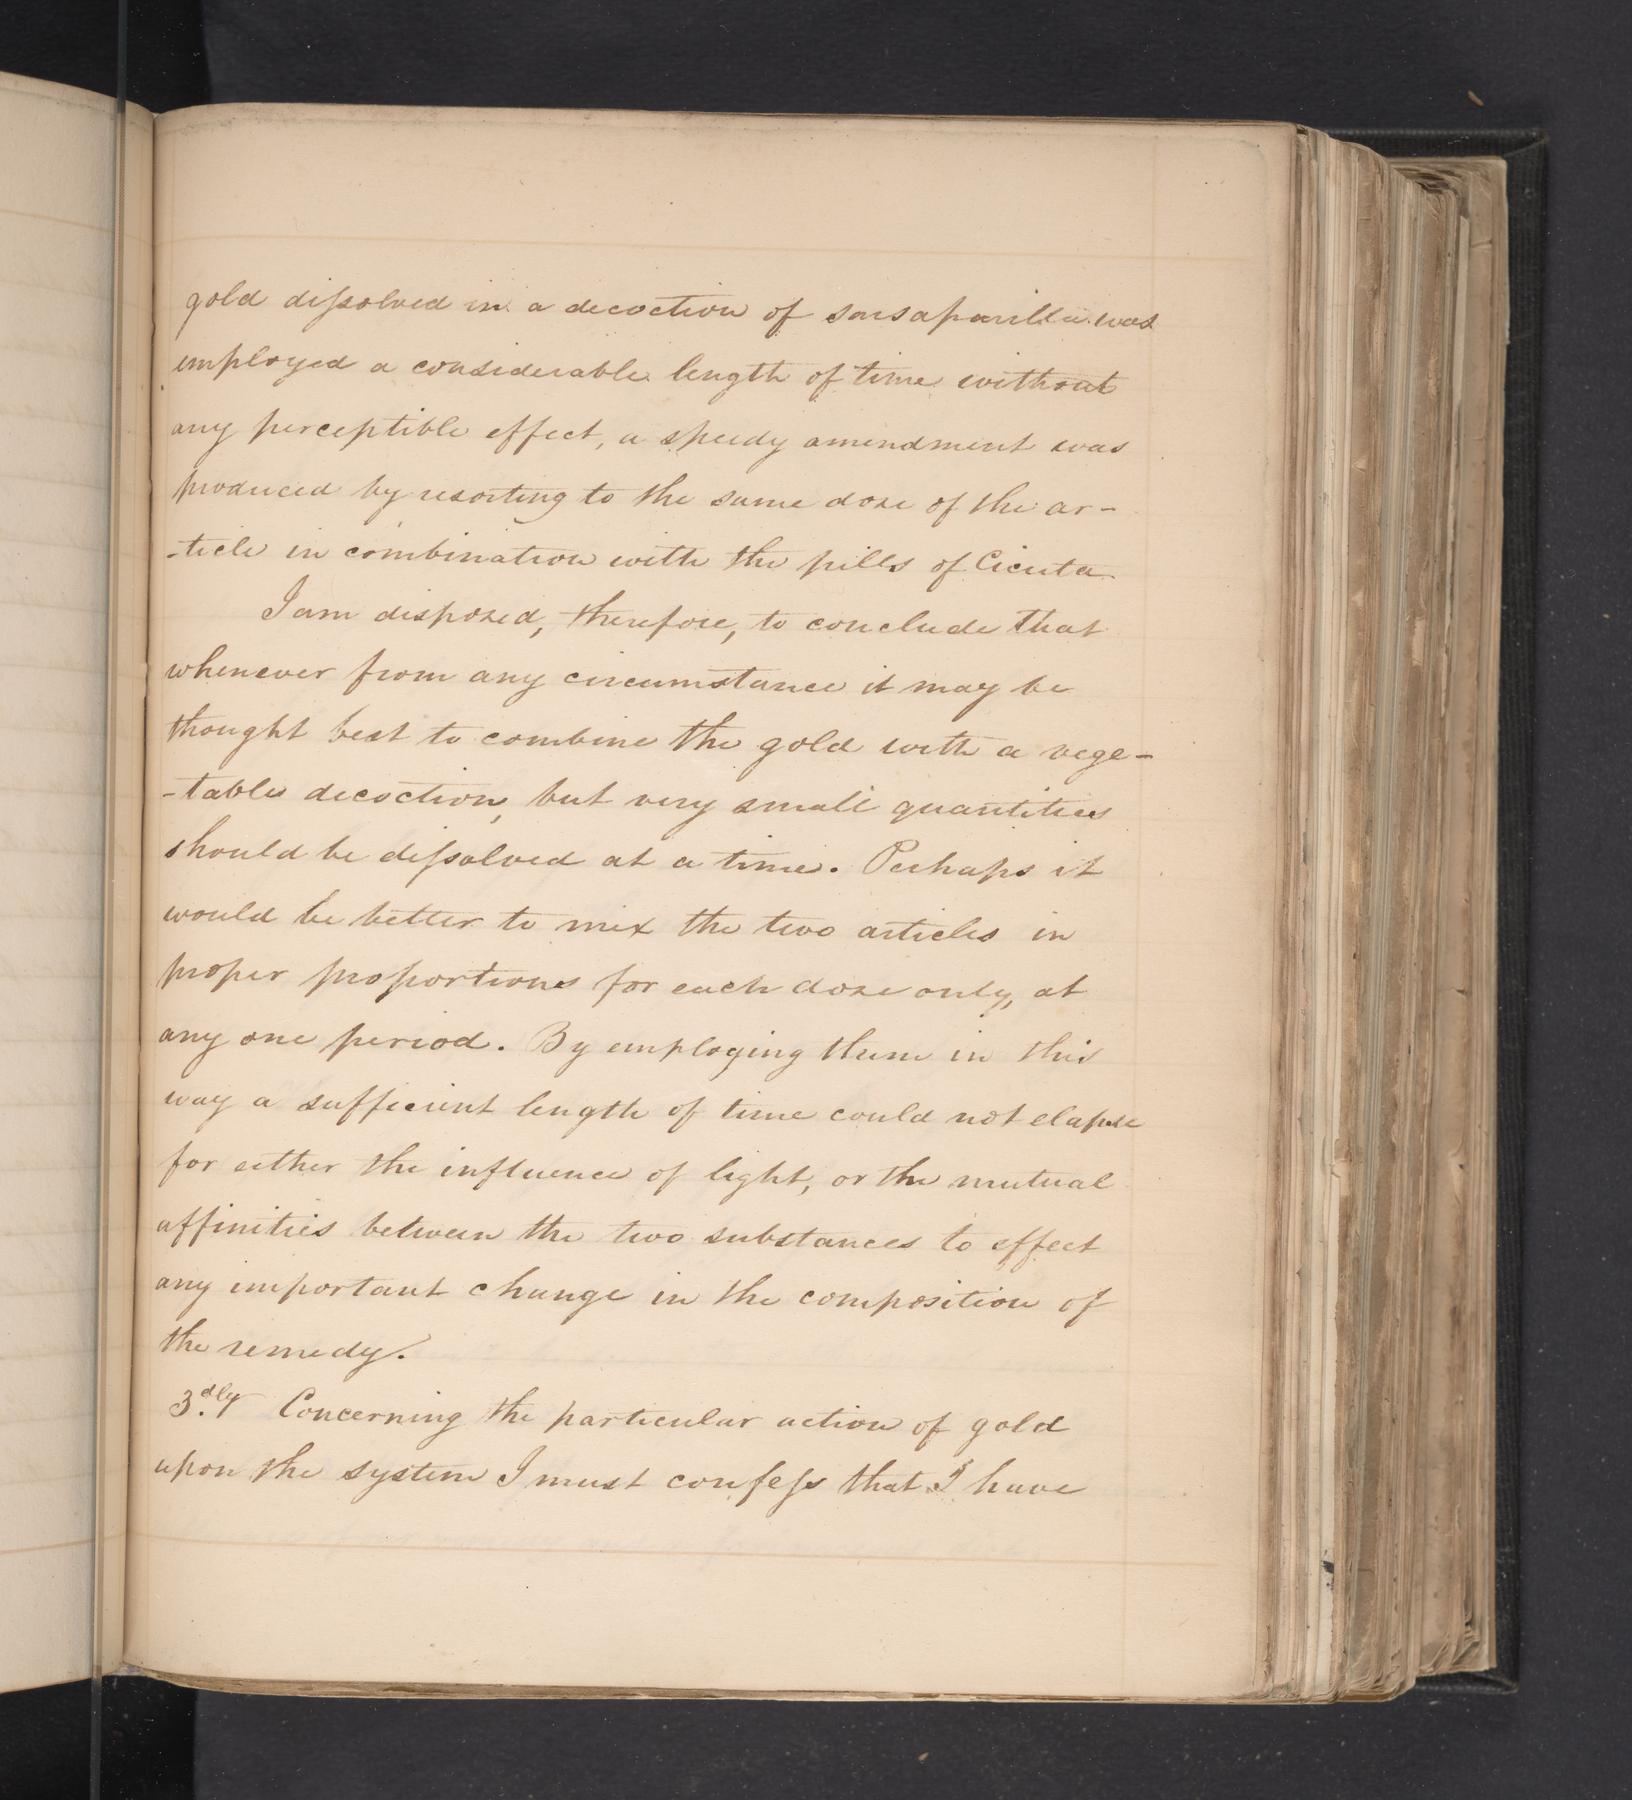 gold dissolved in a decoction of sarsaparilla was
employed a considerable length of time without
any perceptible effect, a speedy amendment was
produced by resorting to the same dose of the ar-
-ticle in combination with the pills of Cicuta.
I am disposed, therefore, to conclude that
whenever from any circumstance it may be
thought best to combine the gold with a vege-
-table decoction, but very small quantities
should be dissolved at a time. Perhaps it
would be better to mix the two articles in
proper proportions for each dose only, at
any one period. By employing them in this
way a sufficient length of time could not elapse
for either the influence of light, or the mutual
affinities between the two substances to effect
any important change in the composition of
the remedy.
3.dly Concerning the particular action of gold
upon the system I must confess that I have